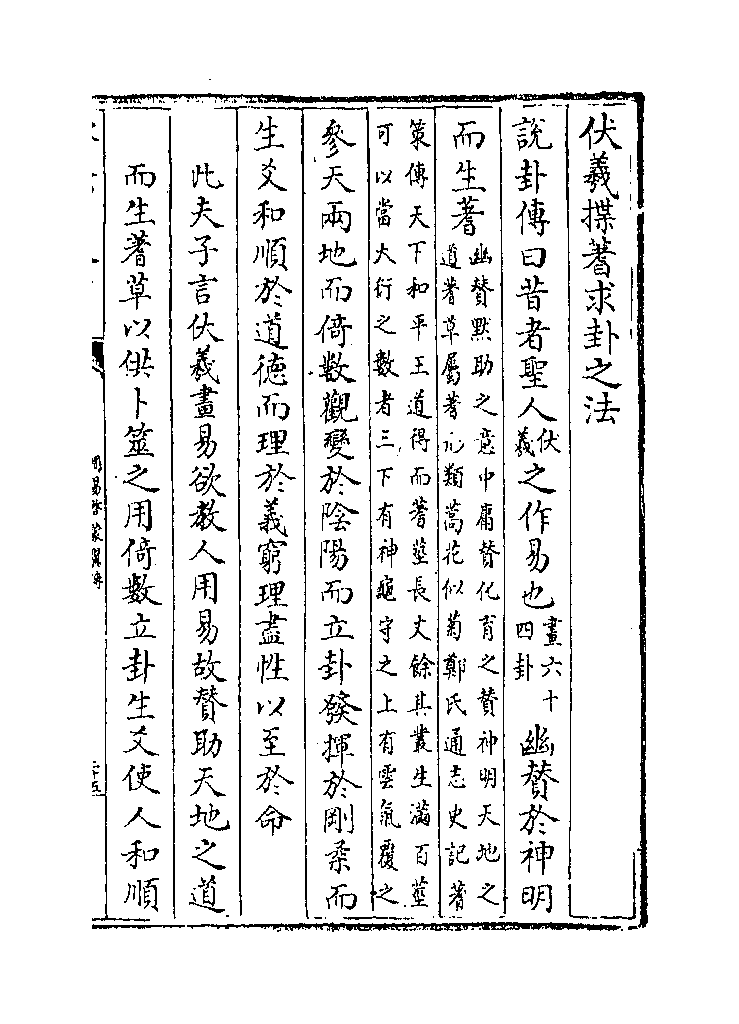 伏羲揲蓍求卦之法
說卦傳曰昔者聖人伏羲之作易也畫六十四卦幽贊於神明
而生蓍幽贊默助之意中庸贊化育之贊神明天地之
道蓍草屬蓍類蒿花似菊鄭氏通志史記蓍
策傳天下和平王道得而蓍莖長丈餘其叢生滿百莖
可以當大衍之數者三下有神龜守之上有雲氣覆之
參天兩地而倚數觀變於陰陽而立卦發揮於剛柔而
生爻和順於道德而理於義窮理盡性以至於命
此夫子言伏羲畫易欲教人用易故贊助天地之道
而生蓍草以供卜筮之用倚數立卦生爻使人和順